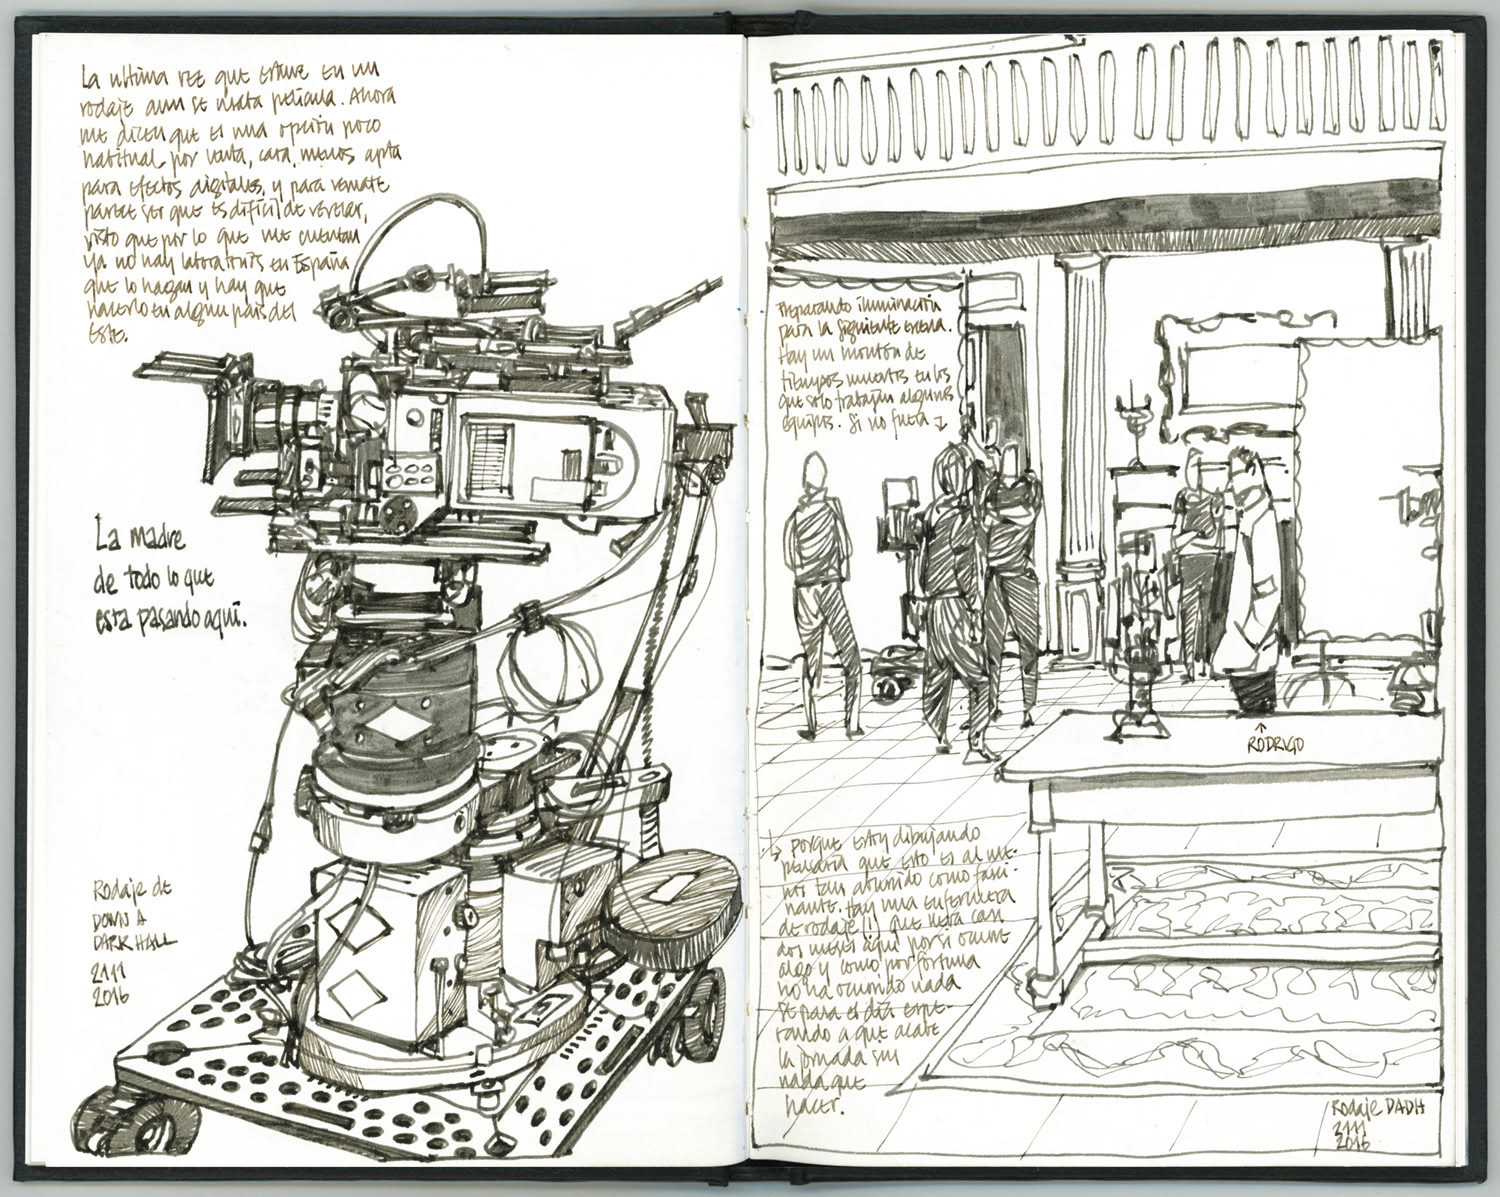 La última vez que estuve en un
rodaje aun se usaba película. Ahora
me dicen que es una opción poco
habitual por lenta, cara, menos apta
para efectos digitales, y para remate
parece ser que es difícil de revelar,
visto que por lo que me cuentan
ya no hay laboratorios en España
que lo hagan y hay que
hacerlo en algún país del
Este.
La madre
de todo lo que
esta pasando aquí.
Rodaje de
DOWN A
DARK HALL
2111
2016
Preparando iluminación
para la siguiente escena.
Hay un montón de
tiempos muertos en los
que solo trabajan algunos
equipos. Si no fuera ↴
↳ porque estoy dibujando
pensaría que esto es al me-
nos tan aburrido como fasci-
nante. Hay una enfermera
de rodaje que lleva casi
dos meses aquí por si ocurre
algo y como por fortuna
no ha ocurrido nada
se pasa el día espe-
rando a que acabe
la jornada sin
nada que
hacer.
↑
RODRIGO
Rodaje DADH
2111
2016